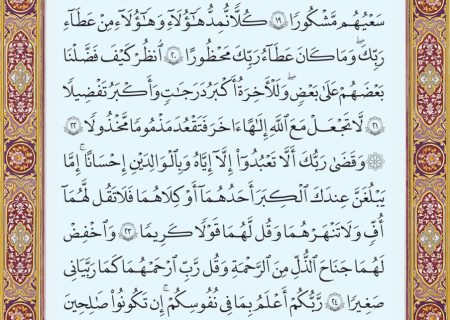 سَعۡيُهُم مَّشۡكُورٗا ١٩ كُلّٗا نُّمِدُّ هَٰٓؤُلَآءِ وَهَٰٓؤُلَآءِ مِنۡ عَطَآءِ
رَبِّكَۚ وَمَا كَانَ عَطَآءُ رَبِّكَ مَحۡظُورًا ٢٠ ٱنظُرۡ كَيۡفَ فَضَّلۡنَا
بَعۡضَهُمۡ عَلَىٰ بَعۡضٖۚ وَلَلۡأٓخِرَةُ أَكۡبَرُ دَرَجَٰتٖ وَأَكۡبَرُ تَفۡضِيلٗا
٢١ لَّا تَجۡعَلۡ مَعَ ٱللَّهِ إِلَٰهًا ءَاخَرَ فَتَقۡعُدَ مَذۡمُومٗا مَّخۡذُولٗا ٢٢
۞ وَقَضَىٰ رَبُّكَ أَلَّا تَعۡبُدُوٓاْ إِلَّآ إِيَّاهُ وَبِٱلۡوَٰلِدَيۡنِ إِحۡسَٰنًاۚ إِمَّا
يَبۡلُغَنَّ عِندَكَ ٱلۡكِبَرَ أَحَدُهُمَآ أَوۡ كِلَاهُمَا فَلَا تَقُل لَّهُمَآ
أُفّٖ وَلَا تَنۡهَرۡهُمَا وَقُل لَّهُمَا قَوۡلٗا كَرِيمٗا ٢٣ وَٱخۡفِضۡ
لَهُمَا جَنَاحَ ٱلذُّلِّ مِنَ ٱلرَّحۡمَةِ وَقُل رَّبِّ ٱرۡحَمۡهُمَا كَمَا رَبَّيَانِي
صَغِيرٗا ٢٤ رَّبُّكُمۡ أَعۡلَمُ بِمَا فِي نُفُوسِكُمۡۚ إِن تَكُونُواْ صَٰلِحِينَ